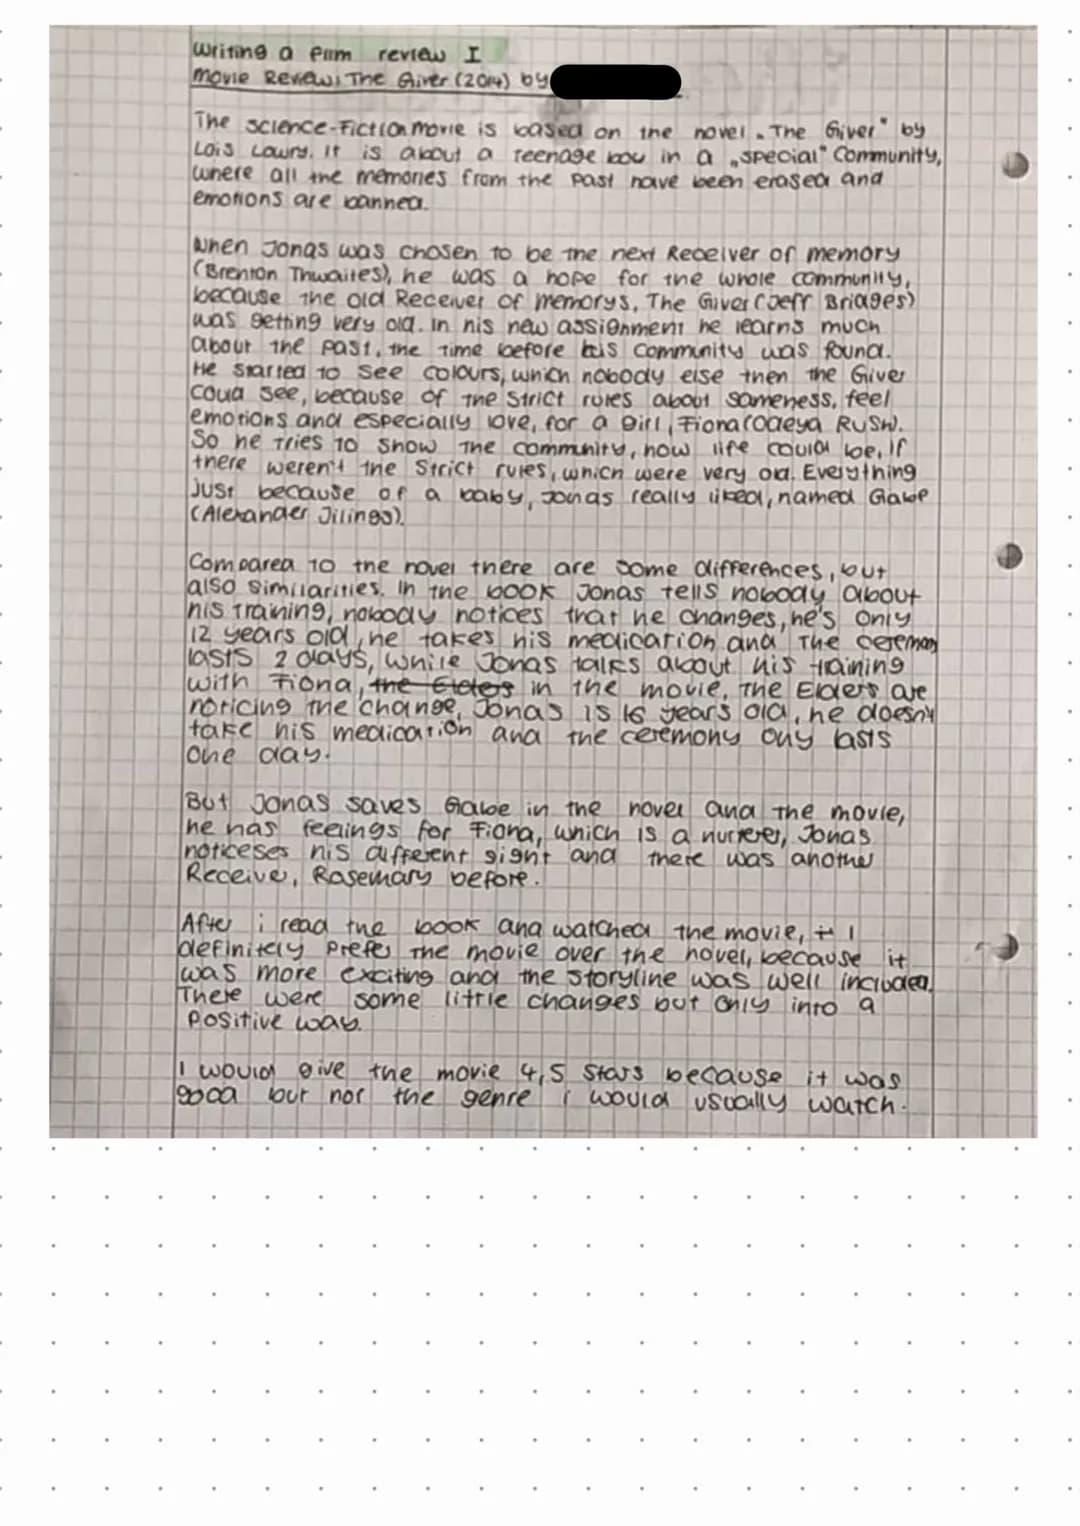 Writing a film review I
Movie Review: The Giver (2014) by
The Science-Fiction movie is based on the novel „The Giver" by
Lois Lowry. It is about a teenage boy in a „special" Community,
where all the memories from the past have been erased and
emotions are banned.
When Jonas was chosen to be the next Receiver of memory
(Brenton Thwaites), he was a hope for the whole community,
because the old Receiver of memorys, The Giver (Jeff Bridges)
was getting very old. In his new assignment he learns much
about the past, the time before his Community was found.
He started to see colours, which nobody else then the Giver
Coud see, because of the strict rules about sameness, feel
emotions and especially love, for a girl, Fiona (Odeya Rush).
So he tries to show the community, how life could be, If
there weren't the strict rules, which were very old. Everything
Just because of a baby, Jonas really liked, named Gabe
(Alexander Jilings).
Compared to the novel there are some differences, but
also similarities. In the book Jonas tells nobody about
his training, nobody notices that he changes, he's only
12 years old, he takes his medication and the ceremony
lasts 2 days, while Jonas talks about his training
with Fiona, the Elders in the movie, the Elders are
noticing the change, Jonas is 16 years old, he doesn't
take his medication and the ceremony ony lasts
one day.
But Jonas saves Gabe in the novel and the movie,
he has feelings for Fiona, which is a nurterer, Jonas
noticeses his different sight and there was another
Receiver, Rosemary before.
After i read the book and watched the movie, I
definitely prefer the movie over the novel, because it
was more exciting and the storyline was well included.
There were some little changes but only into a
positive way.
I would give the movie 4,5 stars because it was
good but not the genre i would usually watch.